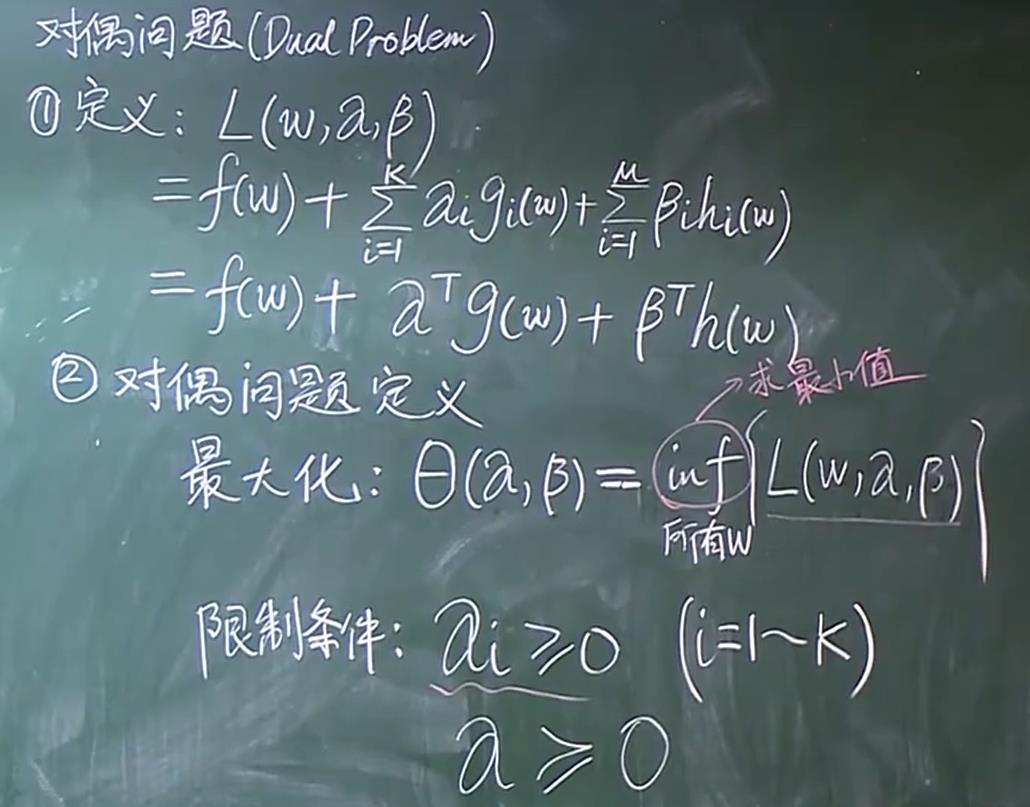 对偶问题(Dual Problem)
① 定义: L(w,α,β)
= f(w) + ∑_{i=1}^{K} α_i g_i(w) + ∑_{i=1}^{M} β_i h_i(w)
= f(w) + α^T g(w) + β^T h(w)
② 对偶问题定义
→求最小值
最大化: θ(α,β) = inf{L(w,α,β)}
所有w
限制条件: α_i ≥ 0 (i=1~K)
α ≥ 0